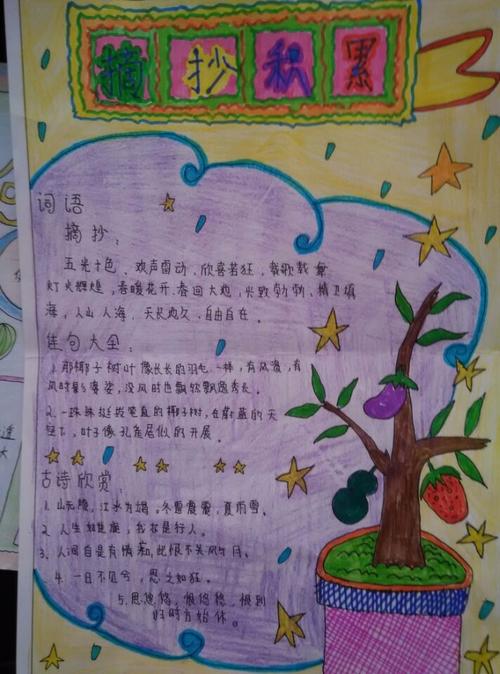 摘抄积累
词语
摘抄：
五光十色、欢声雷动，欣喜若狂，载歌载舞
灯火辉煌，春暖花开，春回大地，兴致勃勃，精卫填
海，人山人海，天长地久，自由自在。
佳句大全：
1. 那椰子树叶像长长的羽毛一样，有风没有
风时婆娑，没风时也飘飘逸秀长。
2. 一珠珠挺拔笔直的椰子树，在蔚蓝的天
空下，叶子像孔雀尾似的开展。
古诗欣赏：
1. 山无陵，江水为竭。冬雷震震，夏雨雪。
2. 人生如逆旅，我亦是行人。
3. 人间自是有情痴，此恨不关风与月。
4. 一日不见兮，思之如狂。
5. 思悠悠，恨悠悠，恨到
时方始休。